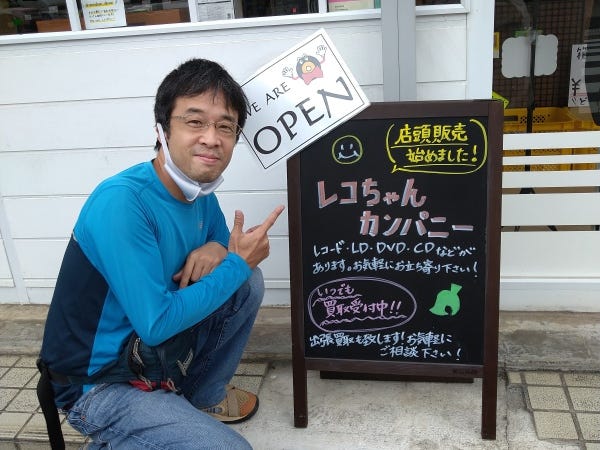 WE ARE
OPEN
店頭販売
始めました!
レコちゃん
カンパニー
レコード・LD・DVD・CDなどが
あります。お気軽にお立ち寄り下さい!
いつでも
買取受付中!!
出張買取も致します!お気軽に
ご相談下さい!